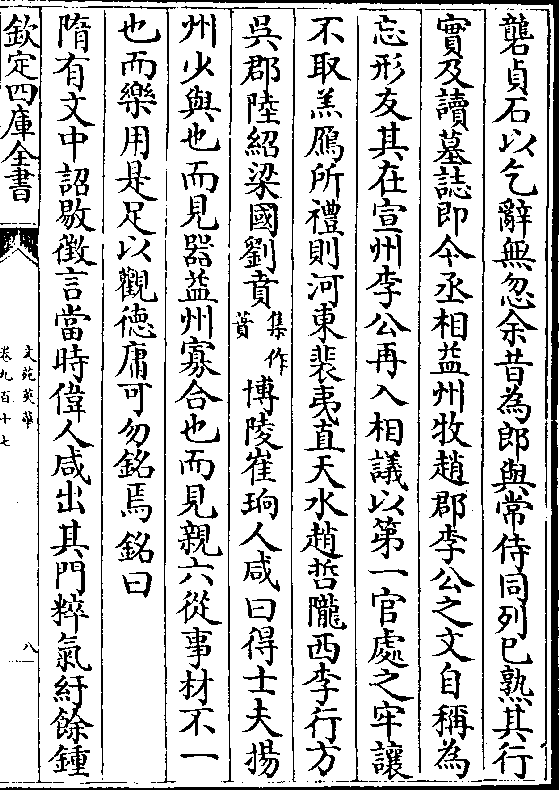 礱貞石以乞辭無忽余昔為郎與常侍同列已熟其行
實及讀墓誌即今丞相益州牧趙郡李公之文自稱為
忘形友其在宣州李公再入相議以第一官處之牢讓
不取羔鴈所禮則河東裴夷直天水趙晢隴西李行方
吳郡陸紹梁國劉蕡集作賁博陵崔珦人咸曰得士夫揚
州火與也而見器益州寡合也而見親六從事材不一
也而樂用是足以觀德庸可勿銘焉銘曰
隋有文中詔敭徵言當時偉人咸出其門粹氣紆餘鍾
欽定四庫全書
文苑英華
卷九百十七
八